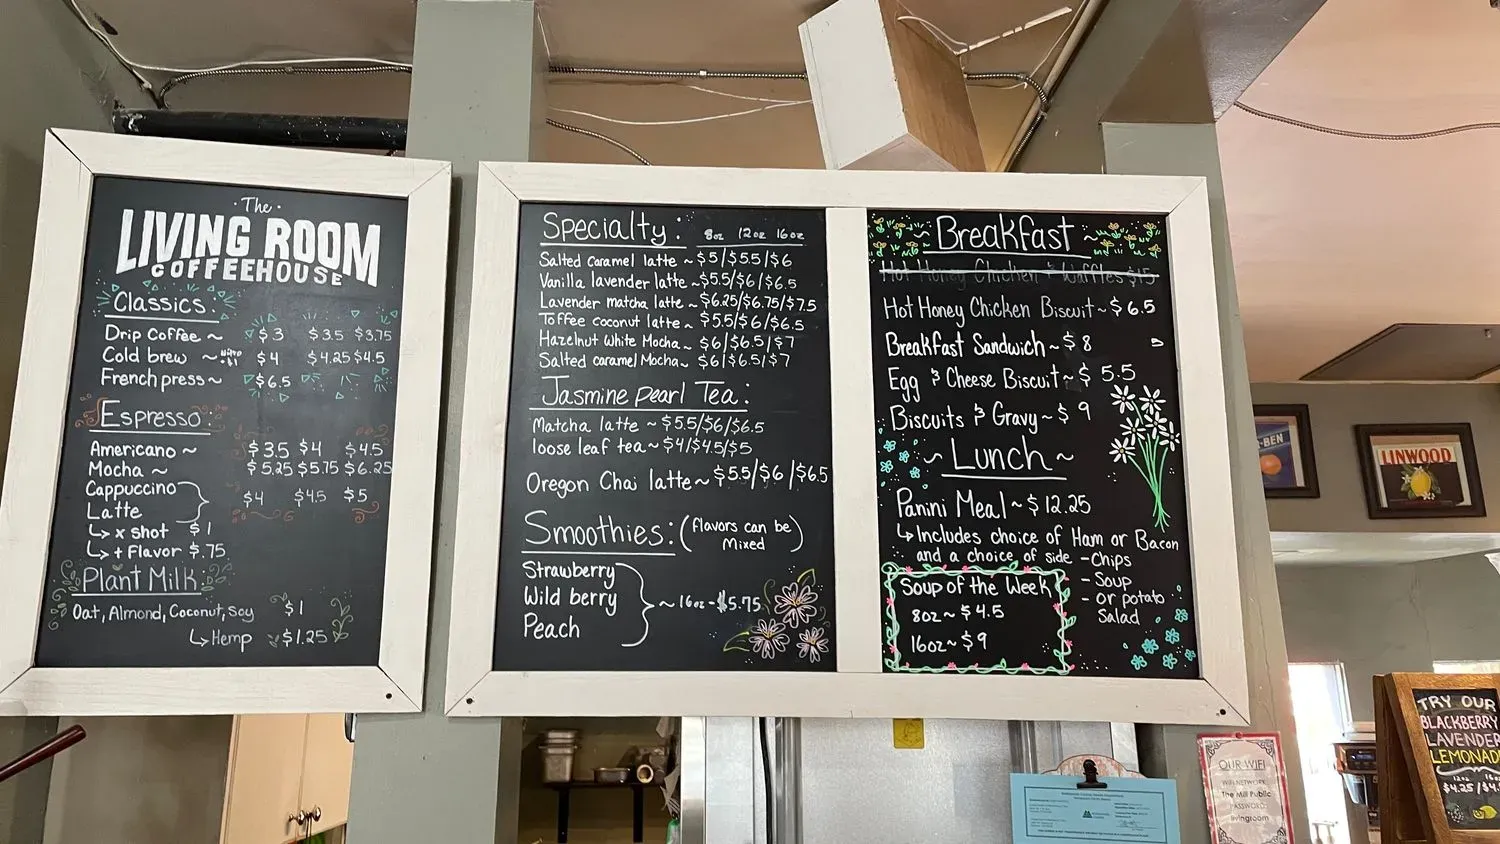 ·The·
LIVING ROOM
COFFEEHOUSE
Classics:
Drip Coffee ~ $3 $3.5 $3.75
Cold brew ~ Nitro +$1 $4 $4.25 $4.5
French press ~ $6.5
Espresso:
Americano ~ $3.5 $4 $4.5
Mocha ~ $5.25 $5.75 $6.25
Cappuccino
Latte
$4 $4.5 $5
↳ x shot $1
↳ + Flavor $.75
Plant Milk:
Oat, Almond, Coconut, Soy $1
↳ Hemp $1.25
Specialty: 8oz 12oz 16oz
Salted caramel latte ~ $5/$5.5/$6
Vanilla lavender latte ~ $5.5/$6/$6.5
Lavender matcha latte ~ $6.25/$6.75/$7.5
Toffee coconut latte ~ $5.5/$6/$6.5
Hazelnut White Mocha ~ $6/$6.5/$7
Salted caramel Mocha ~ $6/$6.5/$7
Jasmine Pearl Tea:
Matcha latte ~ $5.5/$6/$6.5
loose leaf tea ~ $4/$4.5/$5
Oregon Chai latte ~ $5.5/$6/$6.5
Smoothies: (flavors can be
Mixed)
Strawberry
Wild berry ~ 16oz - $5.75
Peach
~ Breakfast ~
Hot Honey Chicken & Waffles $15
Hot Honey Chicken Biscuit ~ $6.5
Breakfast Sandwich ~ $8
Egg & Cheese Biscuit ~ $5.5
Biscuits & Gravy ~ $9
~ Lunch ~
Panini Meal ~ $12.25
↳ Includes choice of Ham or Bacon
and a choice of side - Chips
- Soup
- Or potato
Salad
Soup of the Week
8oz ~ $4.5
16oz ~ $9
-BEN
LINWOOD
TRY OUR
BLACKBERRY
LAVENDER
LEMONAD
12oz 16
$4.25 /$4.
OUR WIFI
WIFI NETWORK:
The Mill Public
PASSWORD:
livingroom